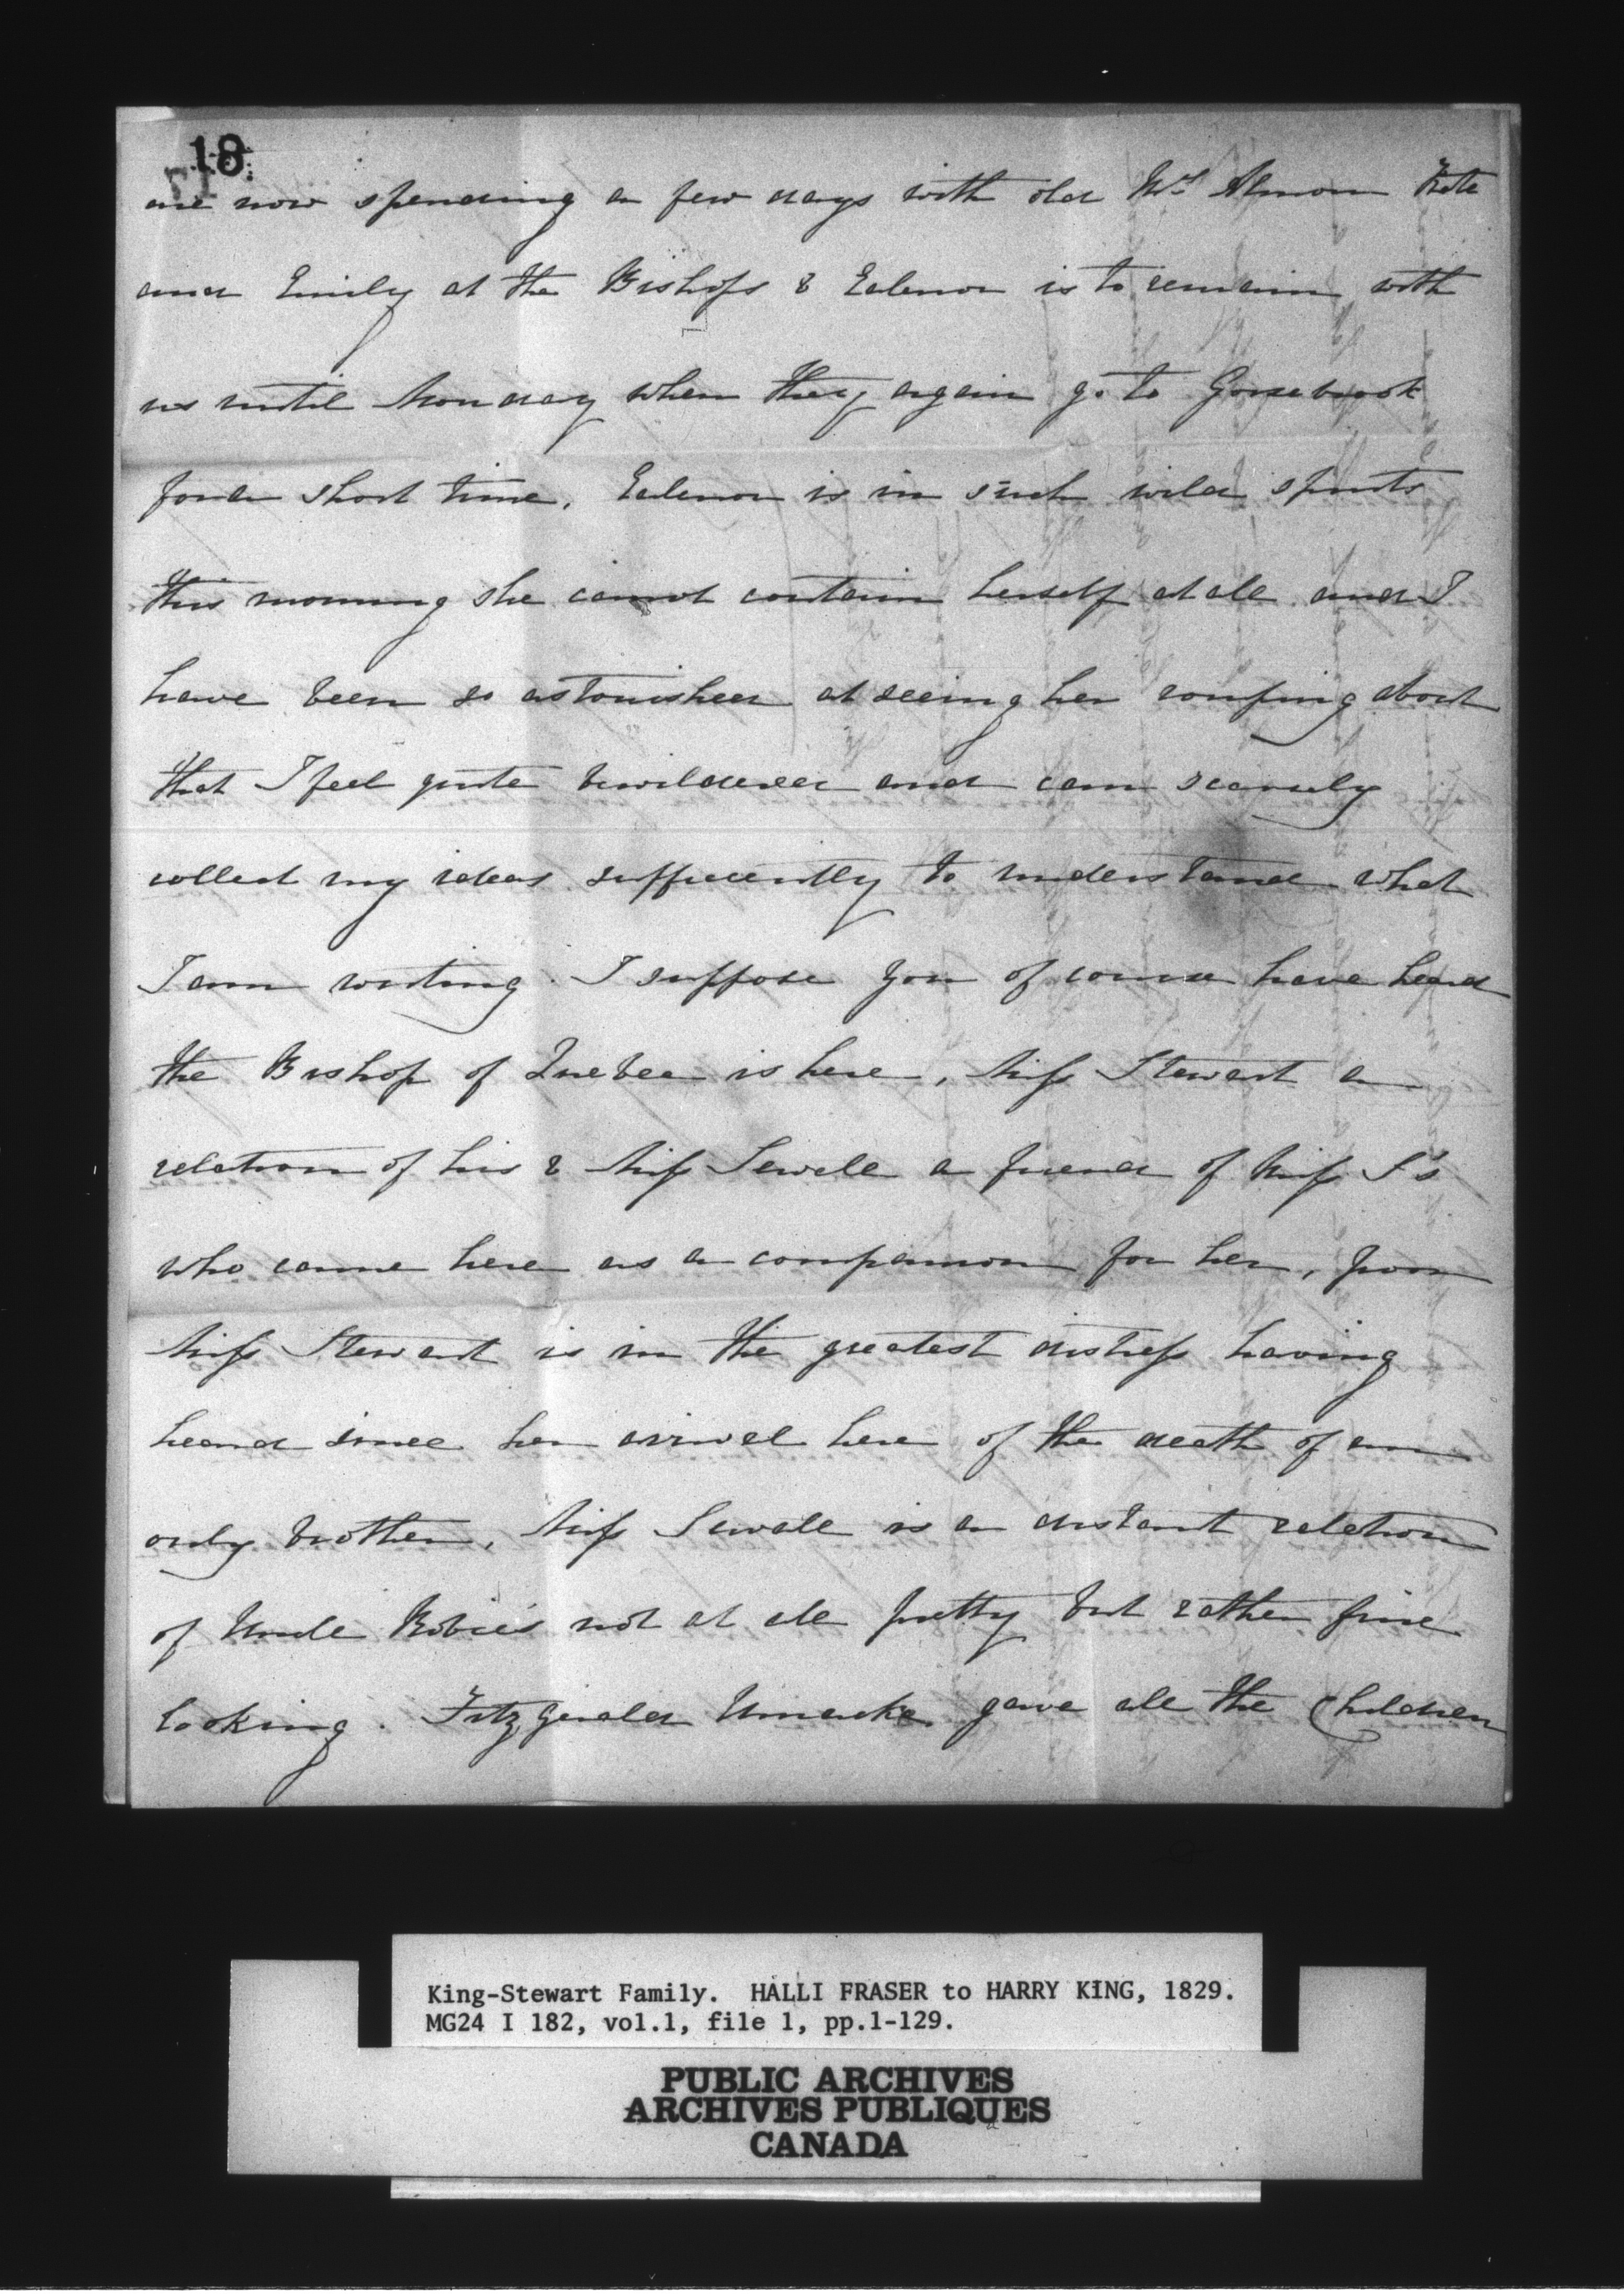 18
are now spending a few days with old Mrs Almon Kate
and Emily at the Bishops & Ealenor is to remain with
us until Monday when they again go to Gorsebrook
for a short time, Ealenor is in such wild spirits
this morning she cannot contain herself at all and I
have been so astonished at seeing her romping about
that I feel quite bewildered and can scarcely
collect my ideas sufficiently to understand what
I am writing. I suppose you of course have heard
the Bishop of Quebec is here, Miss Stewart a
relation of his & Miss Sewell a friend of Miss S's
who came here as a companion for her, poor
Miss Stewart is in the greatest distress having
heard since her arrival here of the death of an
only brother, Miss Sewall is a distant relation
of Uncle Robie's not at all pretty but rather fine
looking. Fitzgerald Uniacke gave all the Children
King-Stewart Family. HALLI FRASER to HARRY KING, 1829.
MG24 I 182, vol.1, file 1, pp.1-129.
PUBLIC ARCHIVES
ARCHIVES PUBLIQUES
CANADA